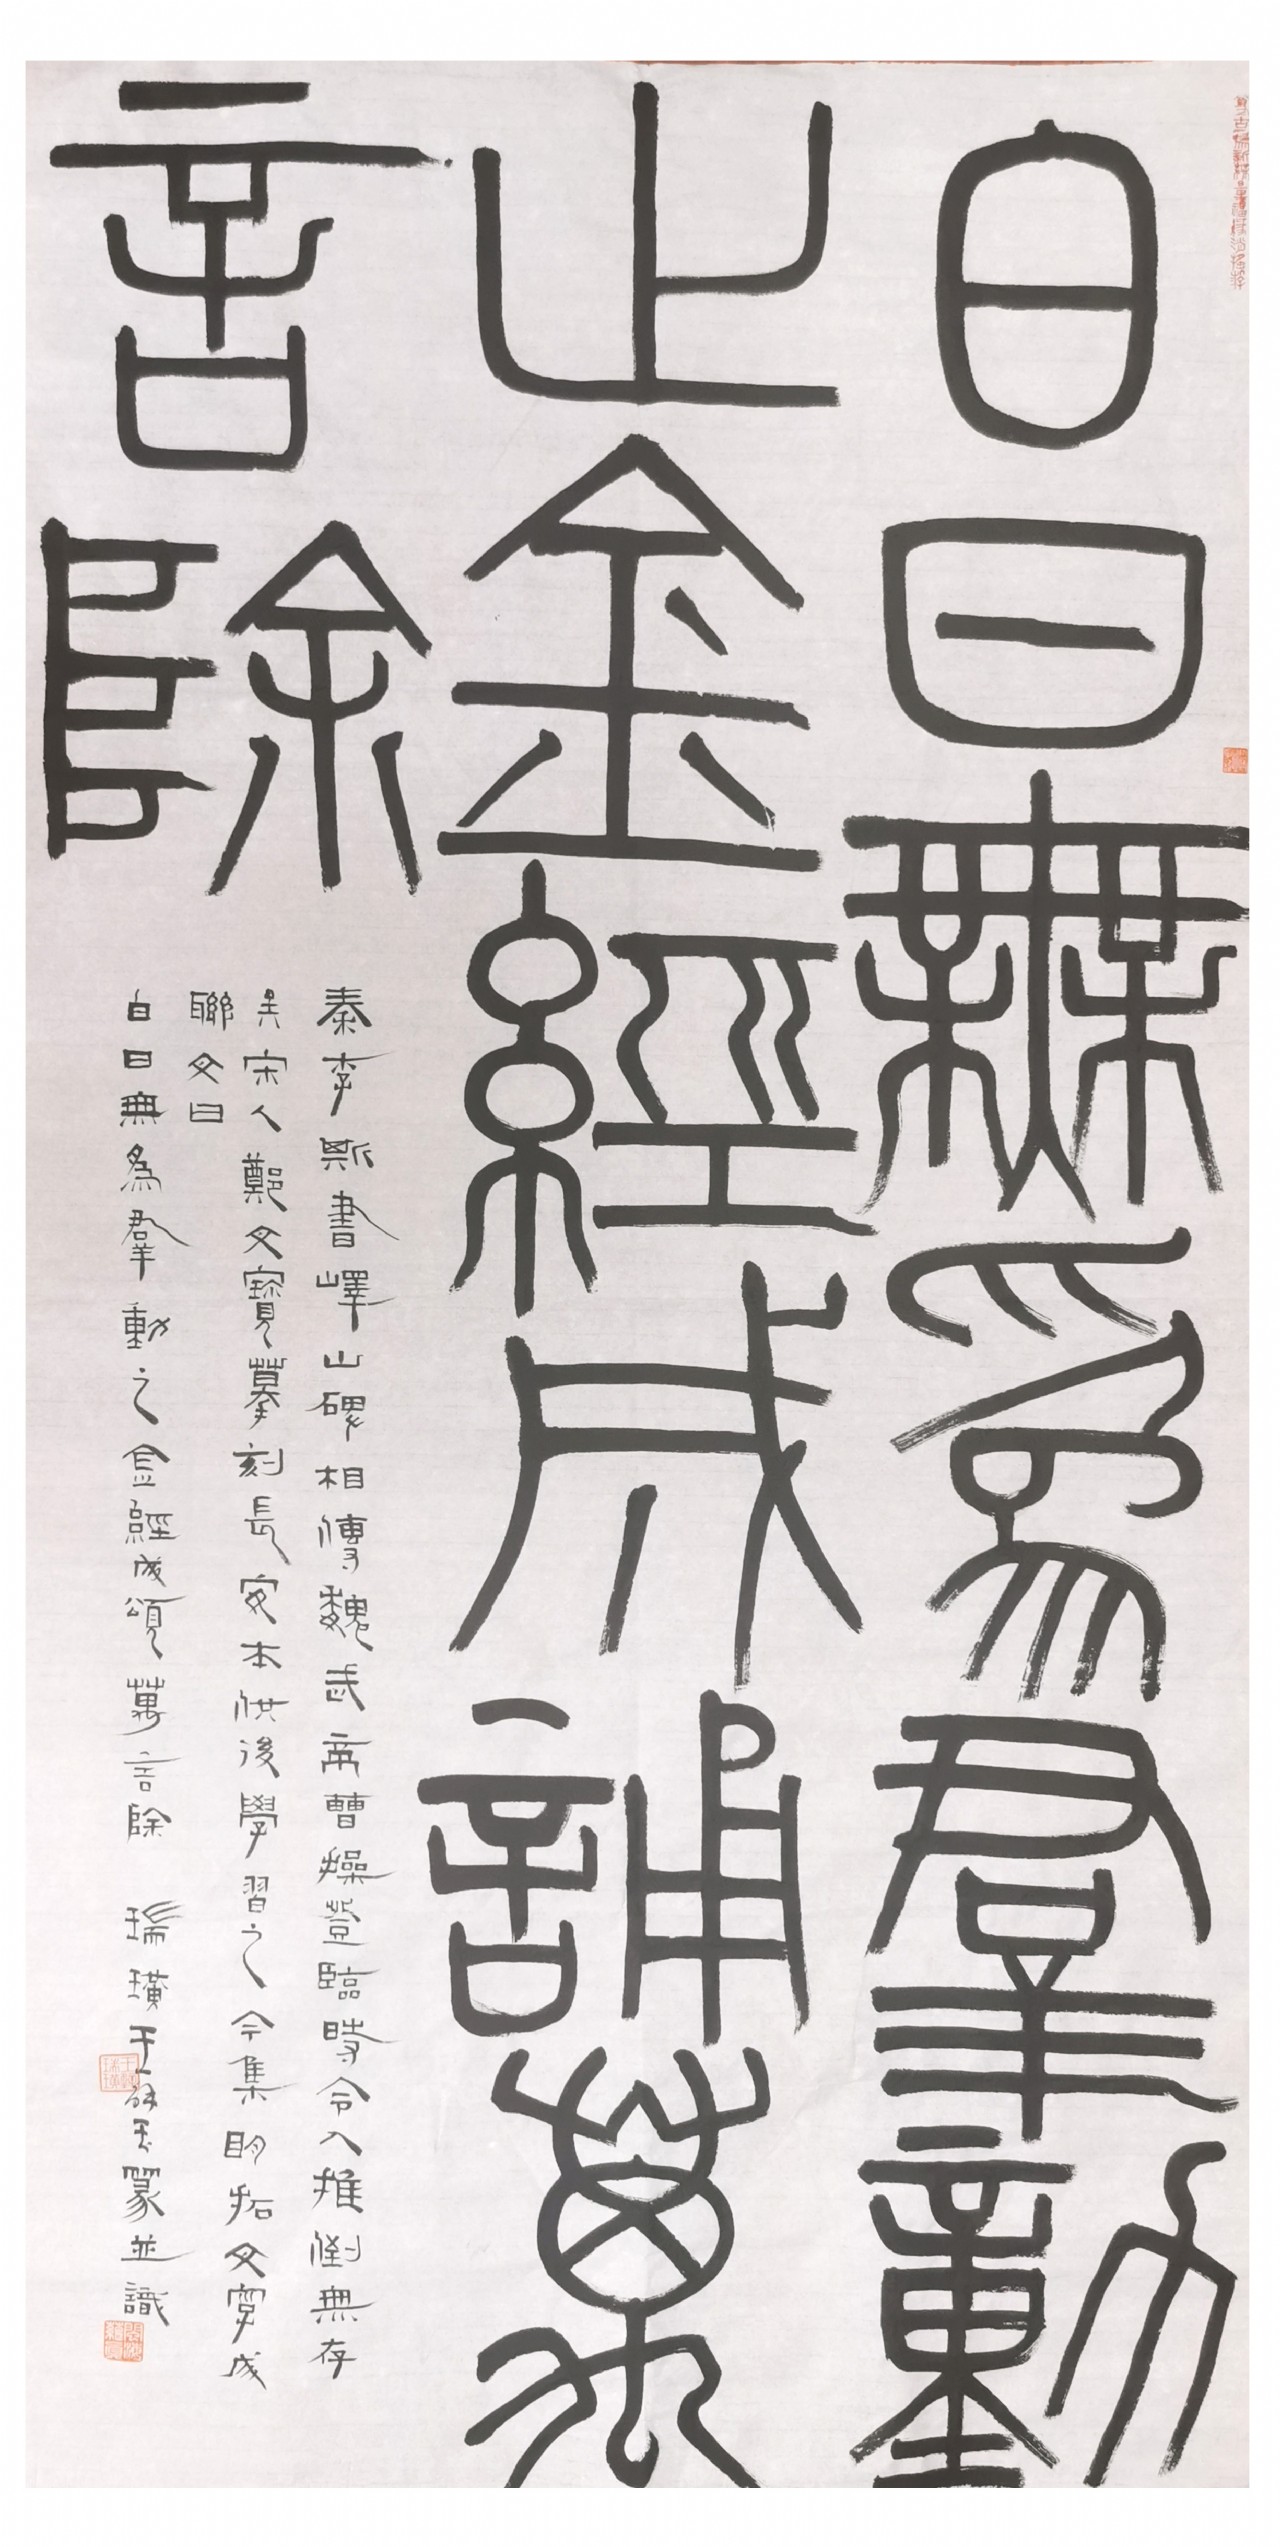 白日無為羣動
止金經成誦萬
言除
秦李斯書嶧山碑相傳魏武帝曹操登臨時令人推倒無存
宋人鄭文寶摹刻長安本供後學習之今集明拓文字成
聯文曰
白日無為羣動之金經成頌萬言除 瑞璜王 篆並識